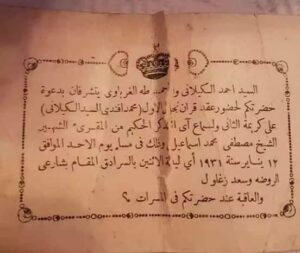 السيد احمد الكيلانى و احمد طه الغرباوى يتشرفان بدعوة
حضرتكم لحضور عقد قران نجل الاول (محمد افندى السيد الكيلانى)
على كريمة الثانى ولسماع آى الذكر الحكيم من المقرىء الشهير
الشيخ مصطفى محمد اسماعيل وذلك فى مساء يوم الاحد الموافق
١٢ يناير سنة ١٩٣١ أى ليلة الاثنين بالسرادق المقام بشارعى
الروضه وسعد زغلول
والعاقبة عند حضرتكم فى المسرات